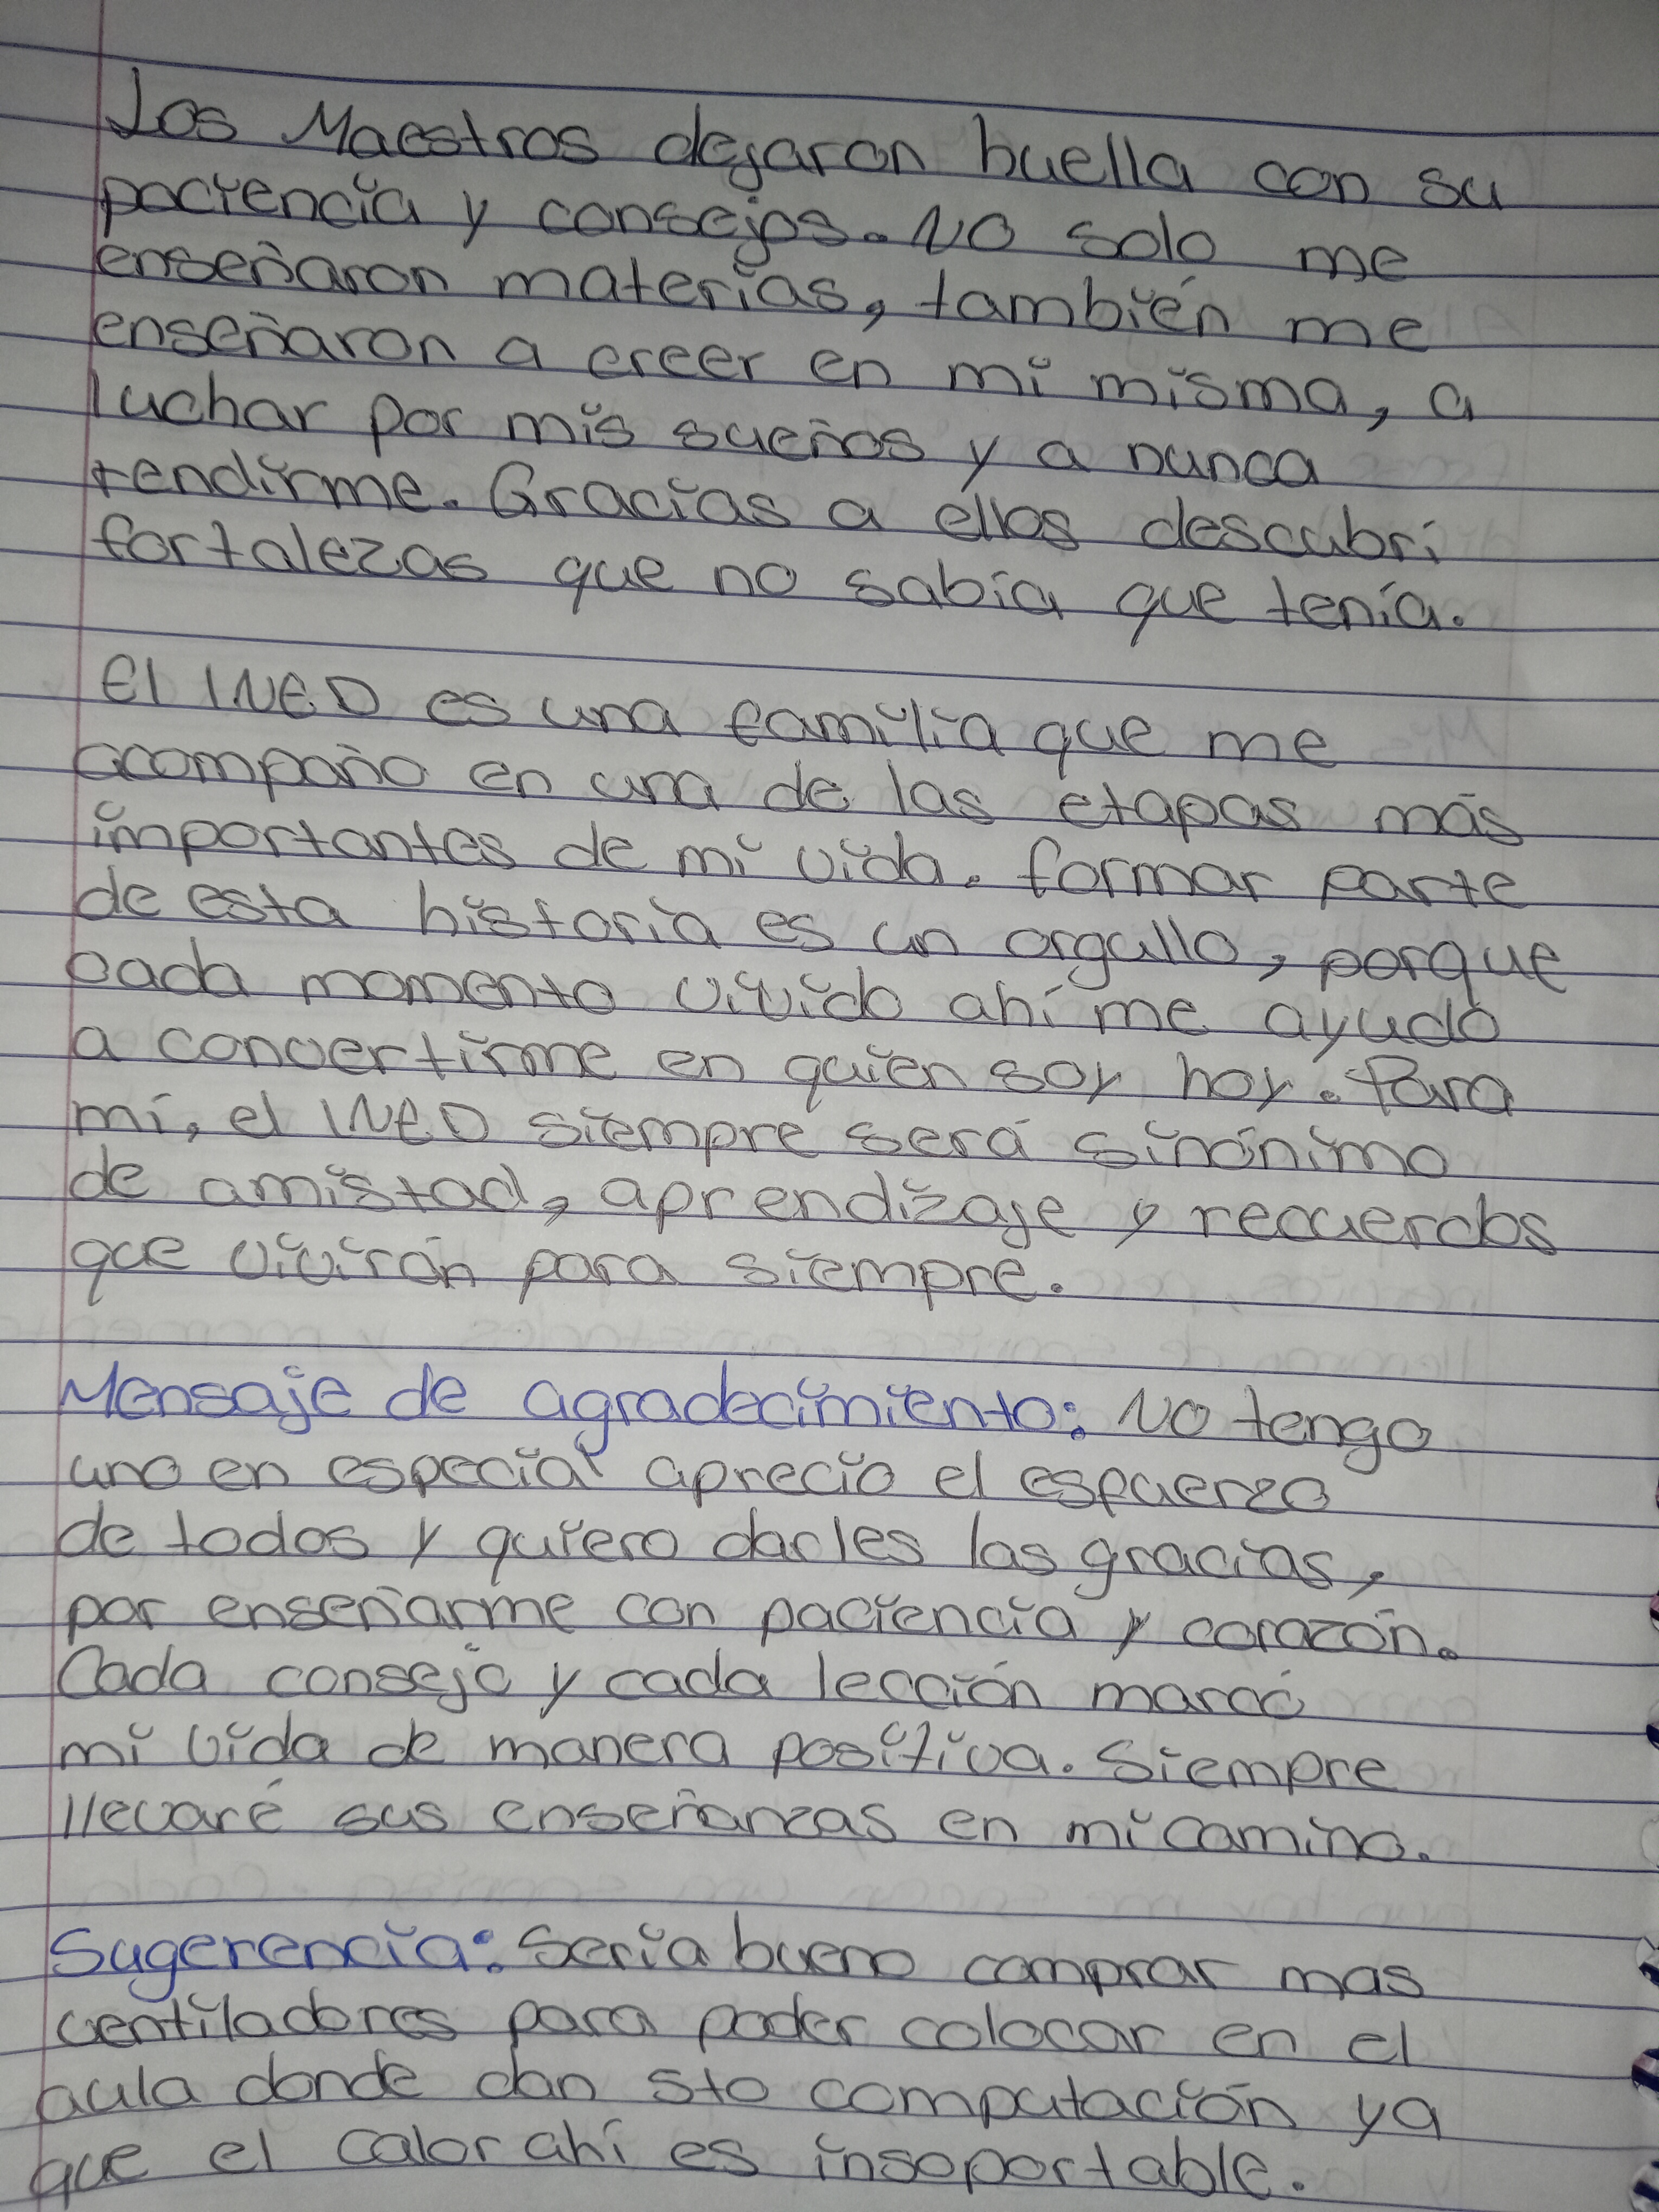 Los Maestros dejaron huella con su
paciencia y consejos. No solo me
enseñaron materias, también me
enseñaron a creer en mi misma, a
luchar por mis sueños y a nunca
rendirme. Gracias a ellos descubrí
fortalezas que no sabía que tenía.
El INED es una familia que me
acompaño en una de las etapas más
importantes de mi vida. formar parte
de esta historia es un orgullo, porque
cada momento vivido ahí me ayudó
a convertirme en quien soy hoy. Para
mí, el INED siempre será sinónimo
de amistad, aprendizaje y recuerdos
que vivirán para siempre.
Mensaje de agradecimiento: No tengo
uno en especial aprecio el esfuerzo
de todos y quiero darles las gracias,
por enseñarme con paciencia y corazón.
Cada consejo y cada lección marcó
mi vida de manera positiva. Siempre
llevaré sus enseñanzas en mi camino.
Sugerencia: Sería bueno comprar mas
ventiladores para poder colocar en el
aula donde dan 5to computación ya
que el calor ahí es insoportable.